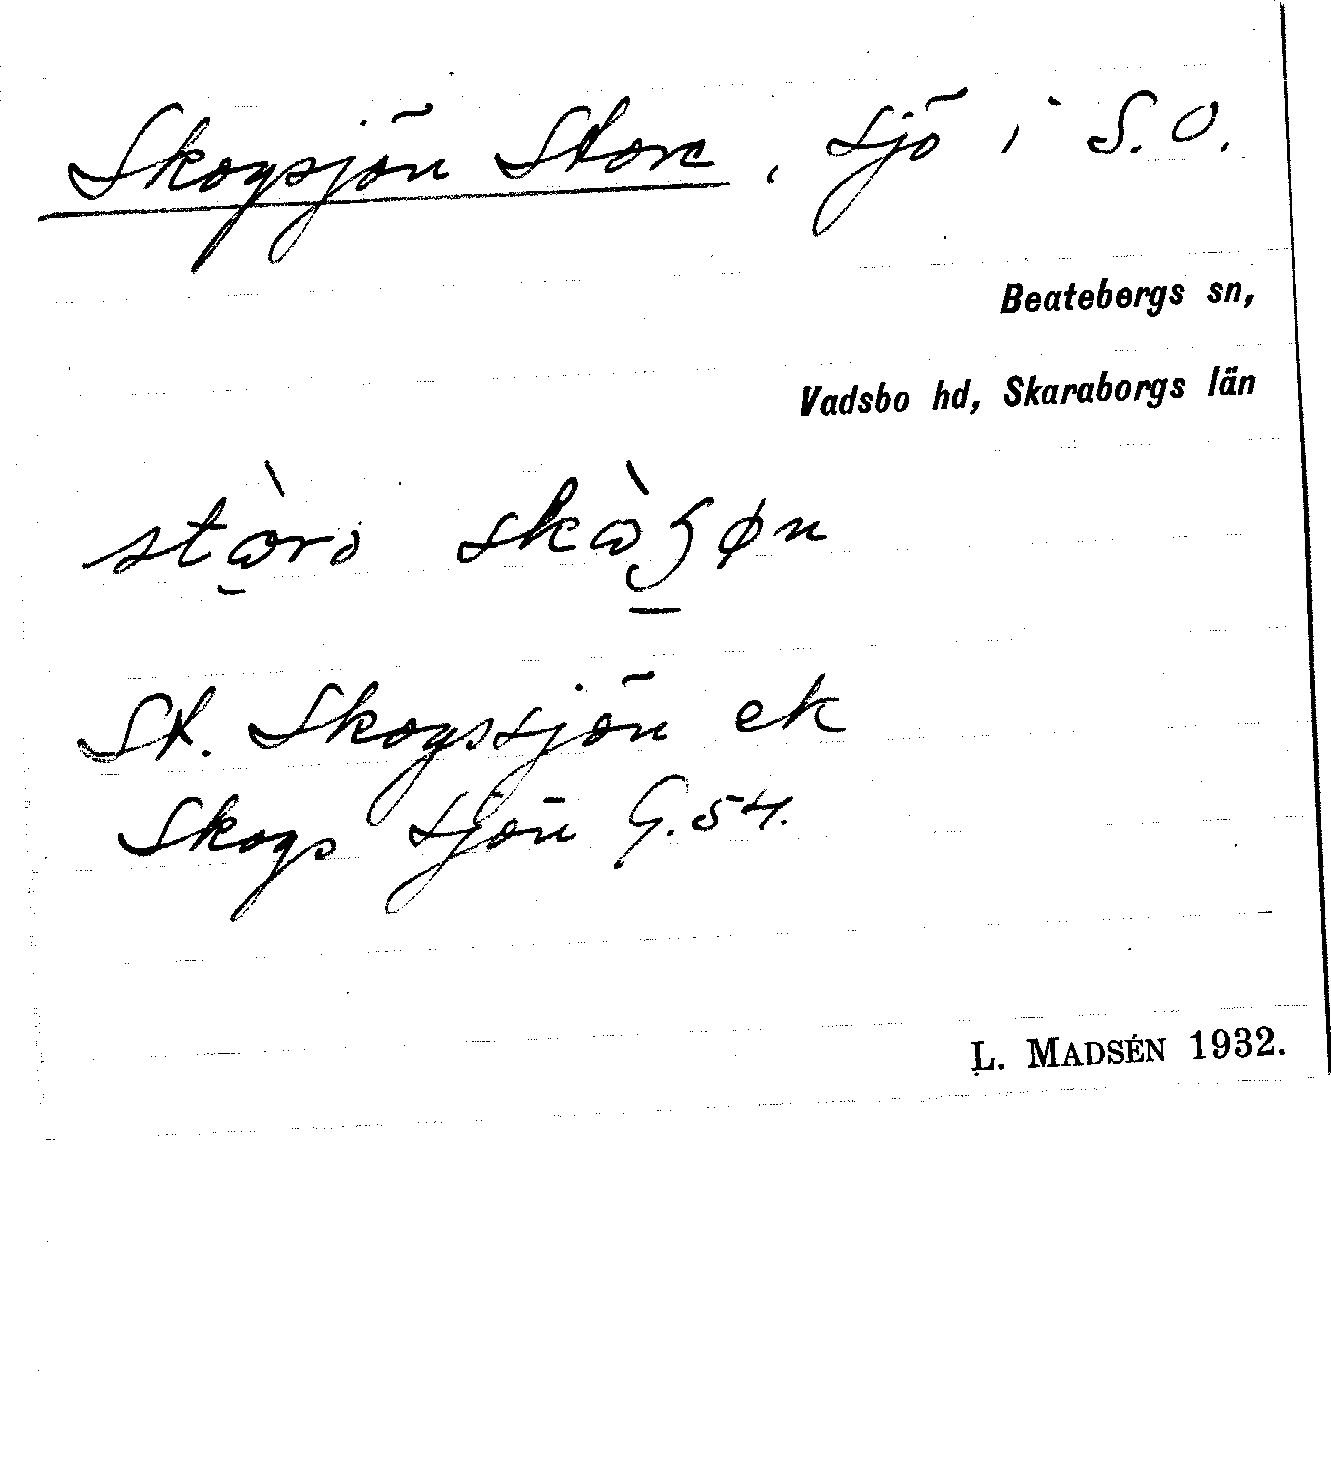 Skogsjön Store, sjö i S.O.
Beatebergs sn,
Vadsbo hd, Skaraborgs län
St. Skogssjön ek
Skogs sjön G.54.
L. MADSÉN 1932.